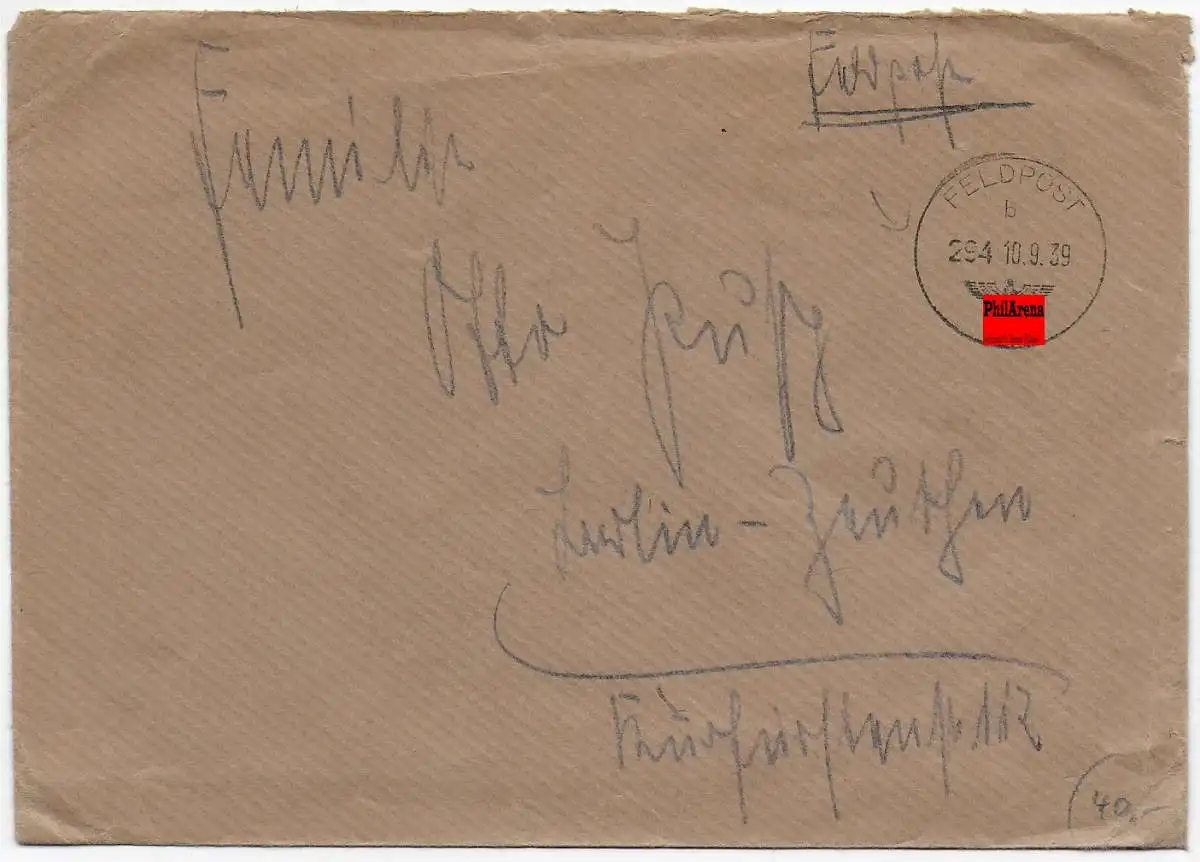 Feldpost
FELDPOST
b
294 10.9.39
PhilArena
Familie
Otto
Berlin - Zeuthen
Kurfürstenstr. 112
40,-